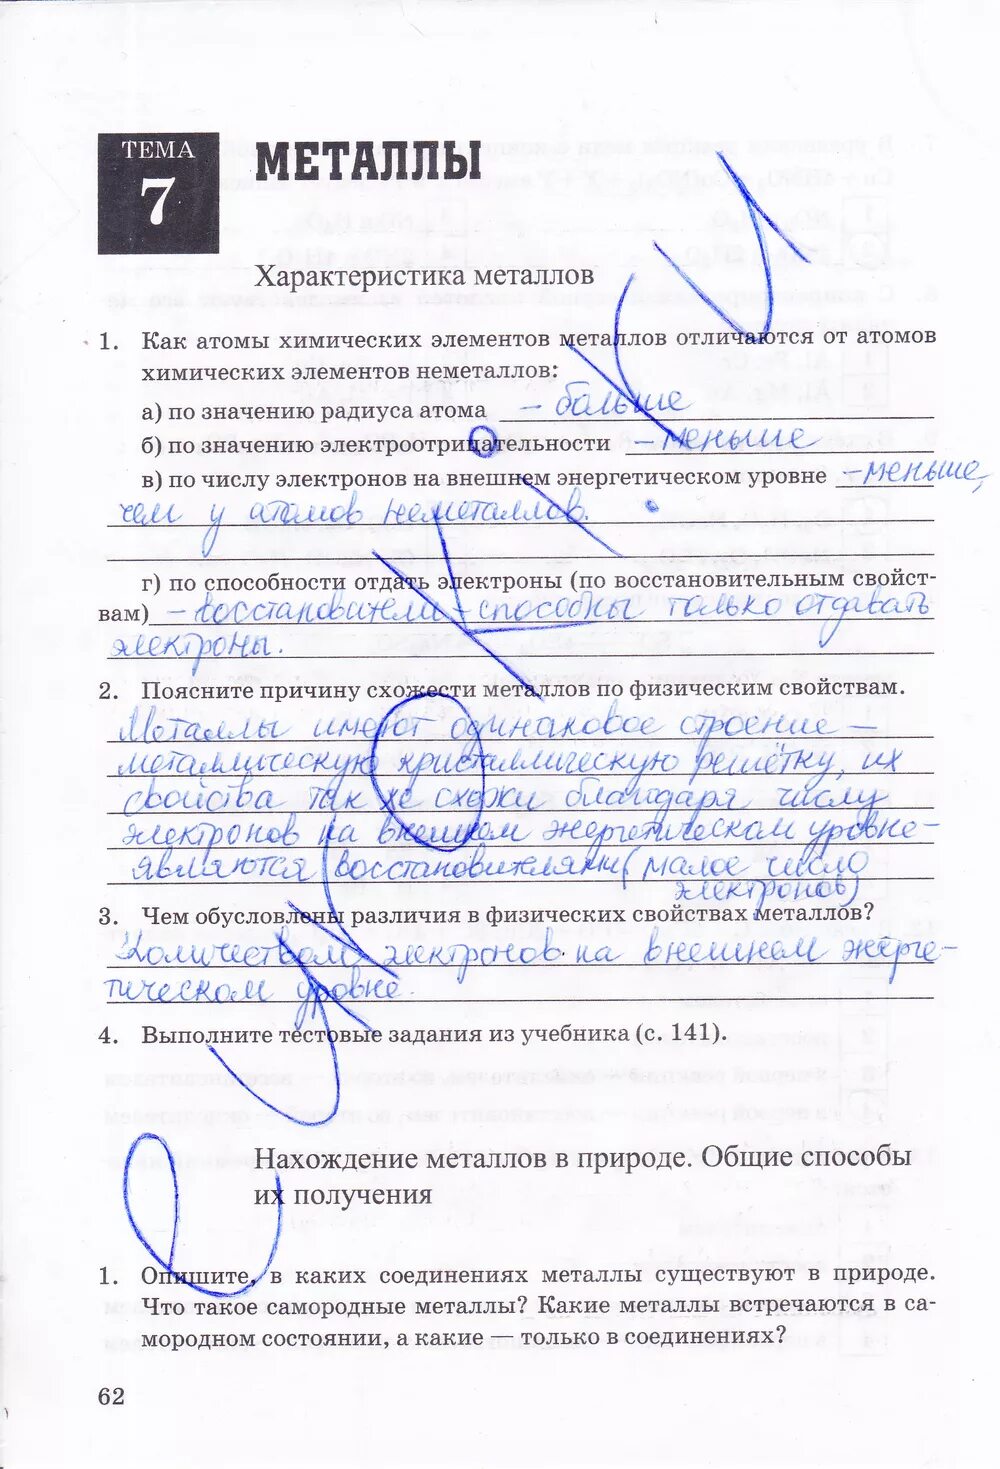 ТЕМА
7
МЕТАЛЛЫ
Характеристика металлов
1. Как атомы химических элементов металлов отличаются от атомов
химических элементов неметаллов:
а) по значению радиуса атома – больше
б) по значению электроотрицательности – меньше
в) по числу электронов на внешнем энергетическом уровне – меньше,
чем у атомов неметаллов.
г) по способности отдать электроны (по восстановительным свойст-
вам) – восстановители – способны только отдавать
электроны.
2. Поясните причину схожести металлов по физическим свойствам.
Металлы имеют одинаковое строение –
металлическую кристаллическую решётку, их
свойства так же схожи благодаря числу
электронов на внешнем энергетическом уровне –
являются восстановителями (малое число
электронов)
3. Чем обусловлены различия в физических свойствах металлов?
Количеством электронов на внешнем энерге-
тическом уровне.
4. Выполните тестовые задания из учебника (с. 141).
Нахождение металлов в природе. Общие способы
их получения
1. Опишите, в каких соединениях металлы существуют в природе.
Что такое самородные металлы? Какие металлы встречаются в са-
мородном состоянии, а какие — только в соединениях?
62